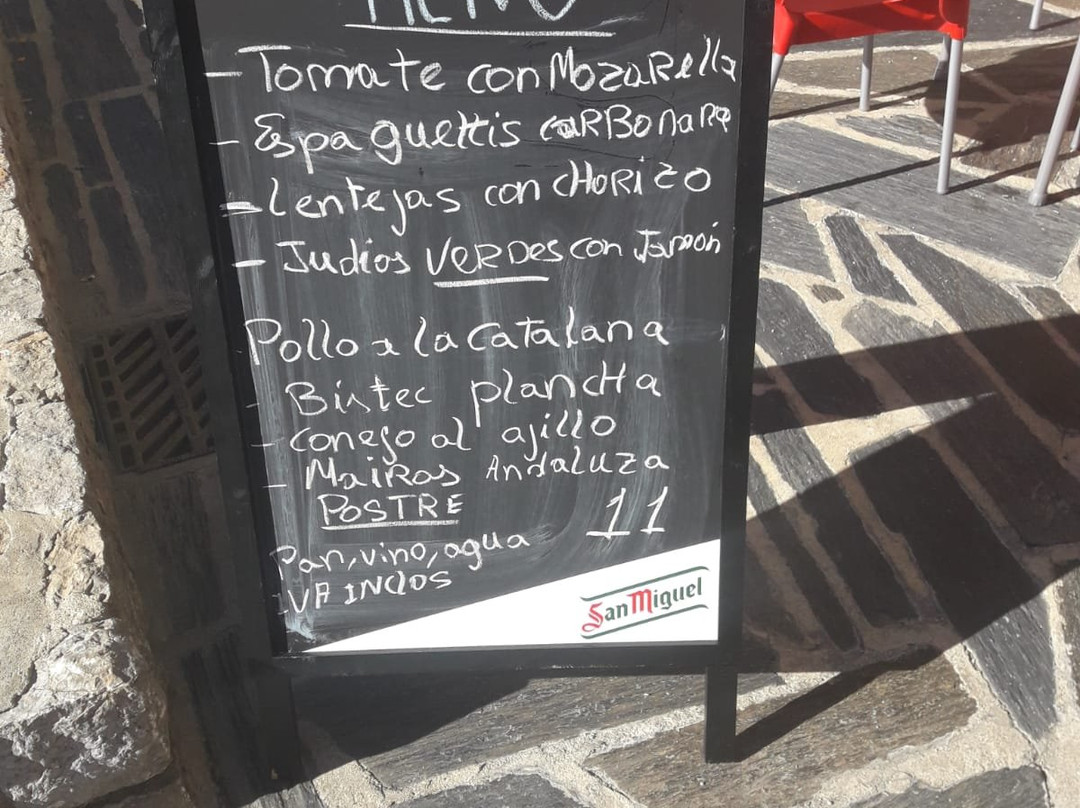 MENÚ
- Tomate con Mozarella
- Espaguettis carbonara
- Lentejas con chorizo
- Judios verdes con Jamón
Pollo a la catalana
- Bistec plancha
- conejo al ajillo
- Mairas Andaluza
POSTRE
11
Pan, vino, agua
IVA INCLOS
San Miguel